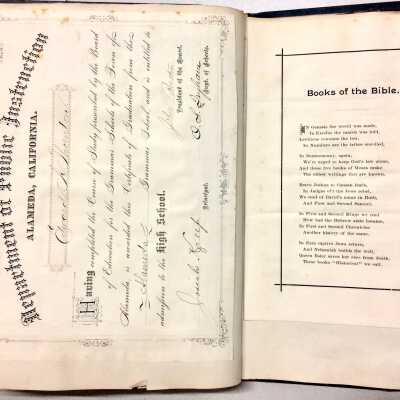 Department of Public Instruction
ALAMEDA, CALIFORNIA.
Having completed the Course of Study prescribed by the Board
of Education for the Grammar Schools of the Town of
Alameda, is awarded this Certificate of Graduation from the
Grammar School and is entitled to
admission to the High School.
President of the Board.
Principal.
Supt. of Schools.
Books of the Bible.
In Genesis the world was made,
In Exodus the march was told,
Leviticus contains the law,
In Numbers are the tribes enrolled,
In Deuteronomy, again,
We're urged to keep God's law alone,
And these five books of Moses make
The oldest writings five are known.
Brave Joshua to Canaan leads,
In Judges oft the Jews rebel,
We read of David's name in Ruth,
And First and Second Samuel.
In First and Second Kings we read
How bad the Hebrew state became,
In First and Second Chronicles
Another history of the same.
In Ezra captive Jews return,
And Nehemiah builds the wall,
Queen Esther saves her race from death,
These books "Historical" we call.